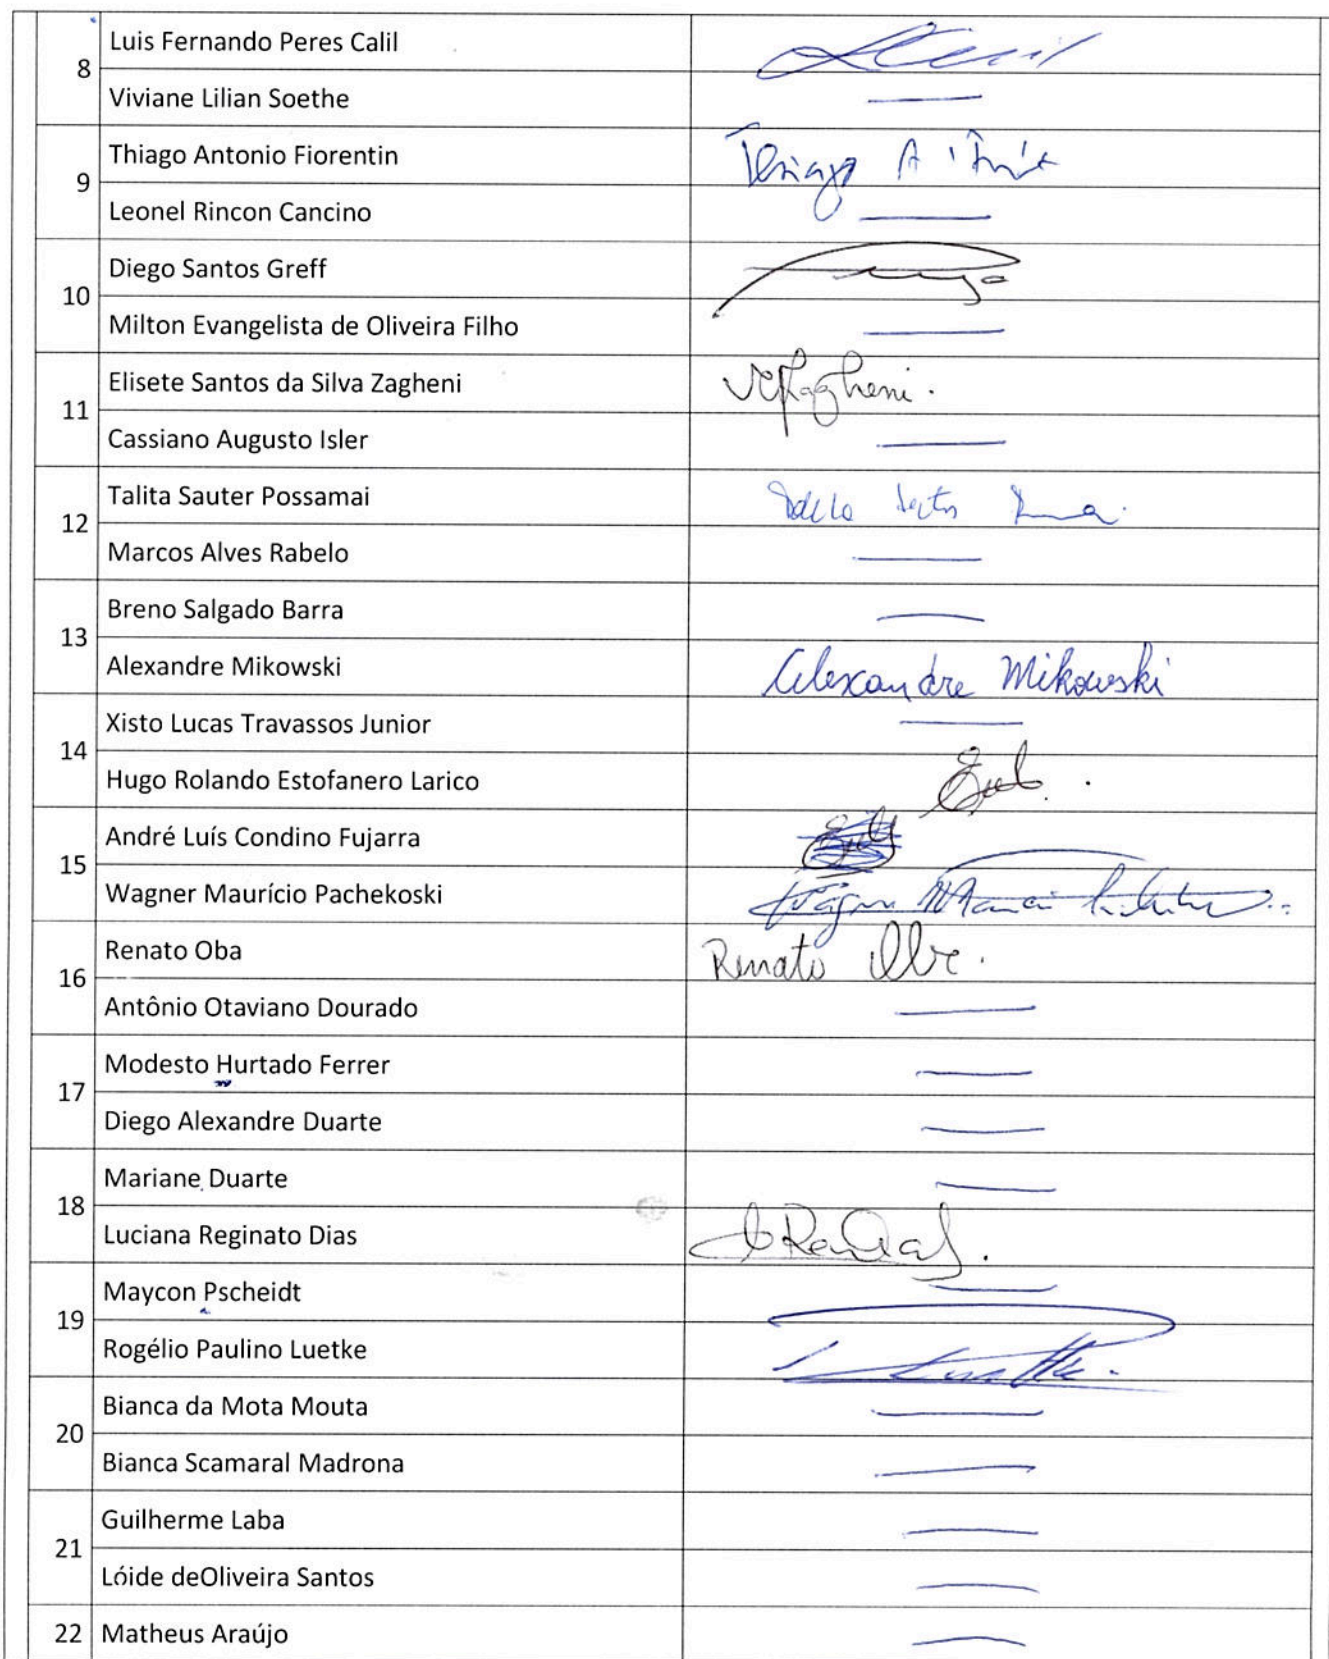 Luis Fernando Peres Calil
8
Viviane Lilian Soethe
Thiago Antonio Fiorentin
Thiago A
9
Leonel Rincon Cancino
Diego Santos Greff
10
Milton Evangelista de Oliveira Filho
Elisete Santos da Silva Zagheni
Zagheni.
11
Cassiano Augusto Isler
Talita Sauter Possamai
12
Marcos Alves Rabelo
Breno Salgado Barra
13
Alexandre Mikowski
Alexandre Mikowski
Xisto Lucas Travassos Junior
14
Hugo Rolando Estofanero Larico
André Luís Condino Fujarra
15
Wagner Maurício Pachekoski
Renato Oba
Renato
16
Antônio Otaviano Dourado
Modesto Hurtado Ferrer
17
Diego Alexandre Duarte
Mariane Duarte
18
Luciana Reginato Dias
Maycon Pscheidt
19
Rogélio Paulino Luetke
Bianca da Mota Mouta
20
Bianca Scamaral Madrona
Guilherme Laba
21
Lóide deOliveira Santos
22 Matheus Araújo